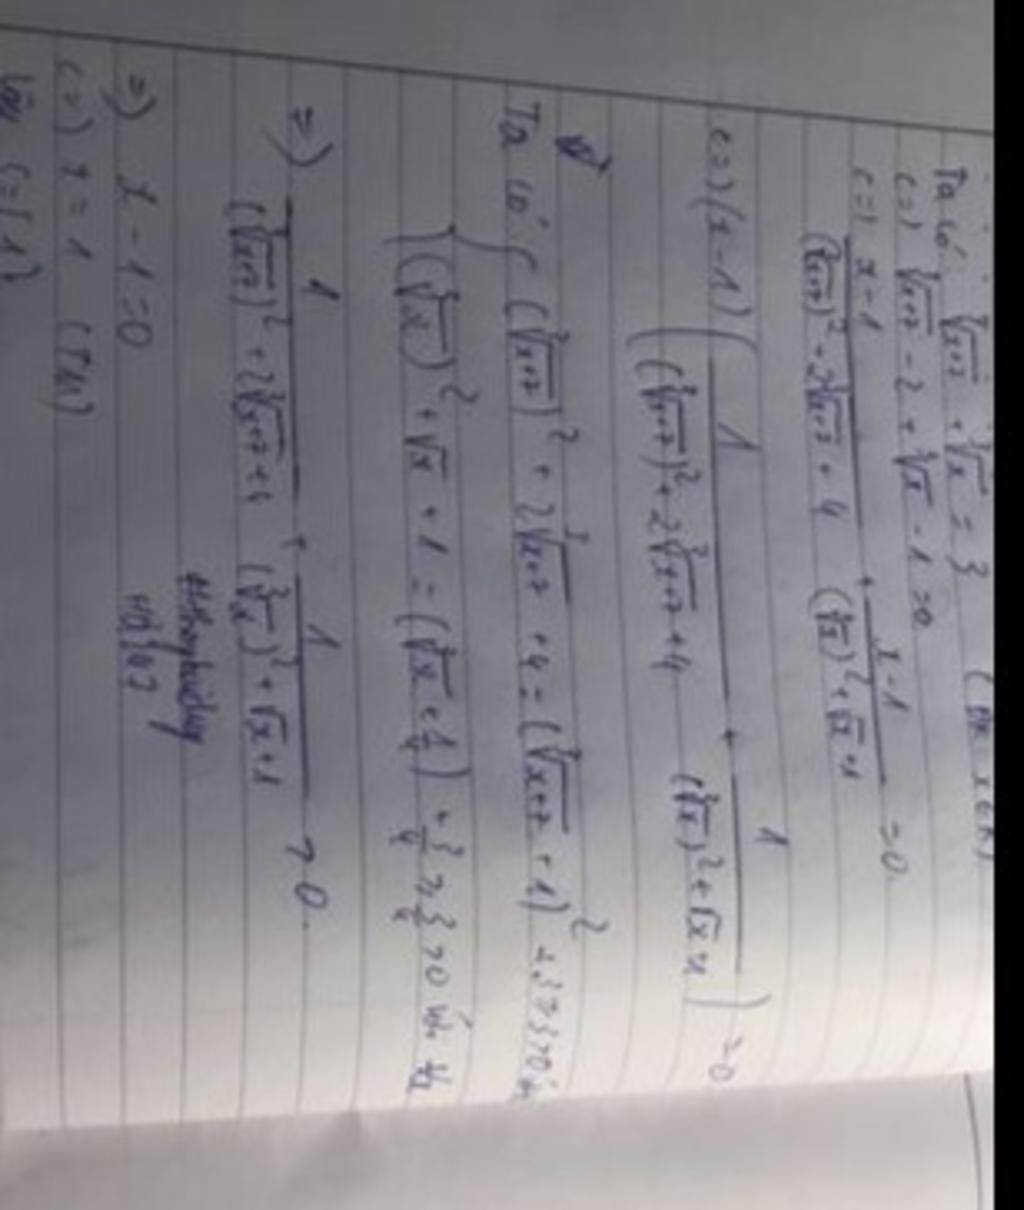 Ta có: ∛(x+7) + ∛x = 3 (ĐK: x∈R)
(=) ∛(x+7) - 2 + ∛x - 1 = 0
(=) (x-1)/((∛(x+7))² + 2∛(x+7) + 4) + (x-1)/((∛x)² + ∛x + 1) = 0
(=) (x-1) (1/((∛(x+7))² + 2∛(x+7) + 4) + 1/((∛x)² + √x + 1)) = 0
Ta có { (∛(x+7))² + 2∛(x+7) + 4 = (∛(x+7) + 1)² + 3 ≥ 3 > 0
(∛x)² + √x + 1 = (∛x + 1/2) + 3/4 ≥ 3/4 > 0 với ∀x
=) 1/((∛(x+7))² + 2∛(x+7) + 4) + 1/((∛x)² + √x + 1) > 0.
=) x - 1 = 0
(=) x = 1 (TM)
Vậy S={1}